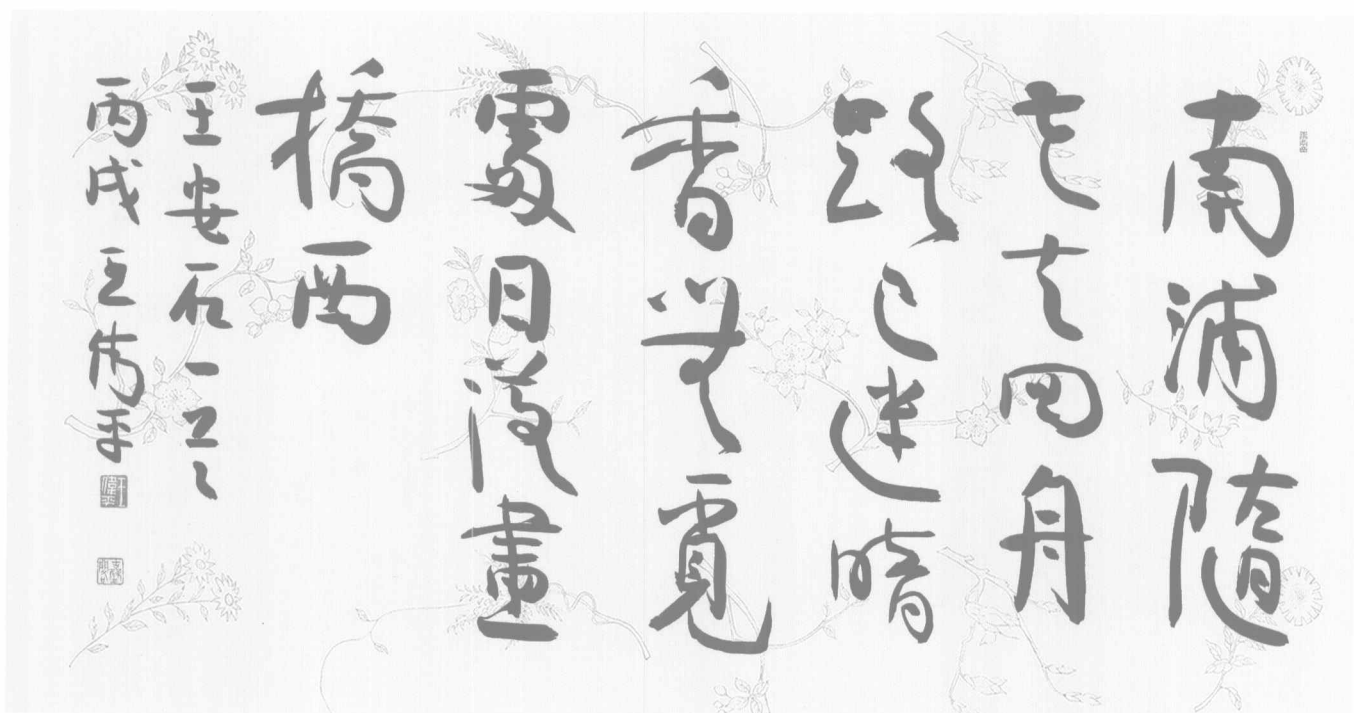 南浦隨
花去回舟
路已迷暗
香無覓
處日落畫
橋西
王安石
丙戌王偉平
王偉平